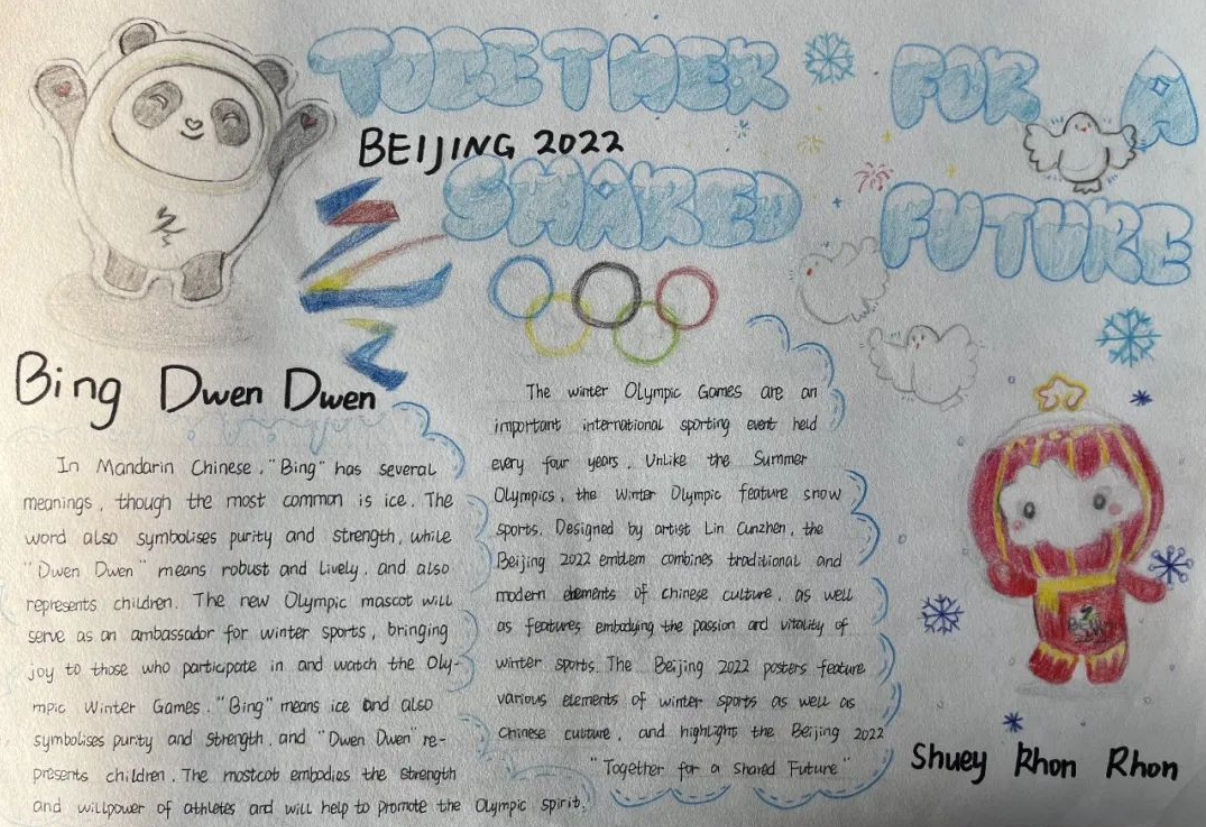 TOGETHER FOR A
BEIJING 2022
SHARED FUTURE
Bing Dwen Dwen
In Mandarin Chinese, "Bing" has several
meanings, though the most common is ice. The
word also symbolises purity and strength, while
"Dwen Dwen" means robust and lively, and also
represents children. The new Olympic mascot will
serve as an ambassador for winter sports, bringing
joy to those who participate in and watch the Oly-
mpic Winter Games. "Bing" means ice and also
symbolises purity and strength, and "Dwen Dwen" re-
presents children. The mostcot embodies the strength
and willpower of athletes and will help to promote the Olympic spirit.
The winter Olympic Games are an
important international sporting event held
every four years. Unlike the Summer
Olympics, the Winter Olympic feature snow
sports. Designed by artist Lin Cunzhen, the
Beijing 2022 emblem combines traditional and
modern elements of chinese culture, as well
as features embodying the passion and vitality of
winter sports. The Beijing 2022 posters feature
various elements of winter sports as well as
Chinese culture, and highlight the Beijing 2022
"Together for a Shared Future"
Shuey Rhon Rhon